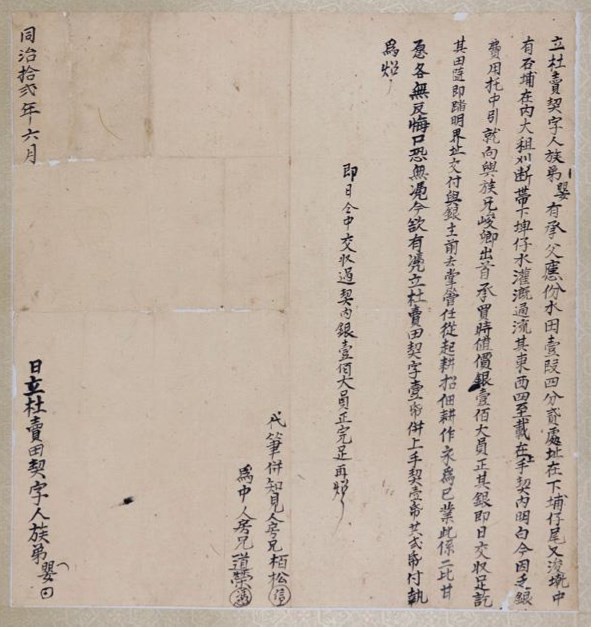 立杜賣契字人族弟嬰有承父應份水田壹段四分貳處址在下埔仔尾又浚坑中
有石埔在內大租刈斷帶下埤仔水灌溉通流其東西四至載在手契內明白今因乏銀
費用托中引就向與族兄峻卿出首承買時值價銀壹佰大員正其銀即日交收足訖
其田隨即踏明界址交付與銀主前去掌管任從起耕招佃耕作永為己業此係二比甘
愿各無反悔口恐無憑今欲有憑立杜賣田契字壹帋併上手契壹帋共弍帋付執
為炤
即日仝中交收過契內銀壹佰大員正完足再炤
代筆併知見人房兄栢松
為中人房兄道榮
同治拾弍年六月
日立杜賣田契字人族弟嬰